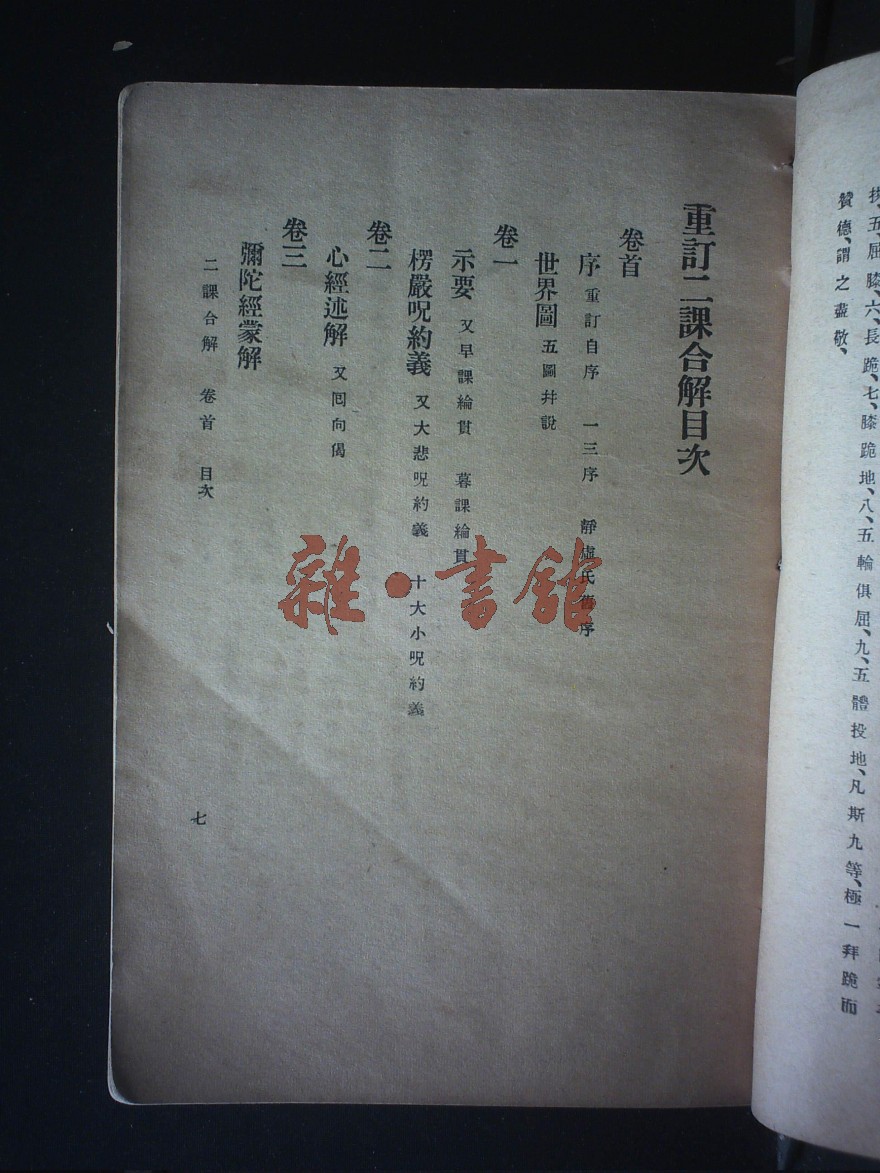 拱、五、屈膝、六、長跪、七、膝跪地、八、五輪俱屈、九、五體投地、凡斯九等、極一拜跪而
贊德、謂之盡敬、
重訂二課合解目次
卷首
序 重訂自序 一三序 靜虛氏舊序
世界圖 五圖幷說
卷一
示要 又早課綸貫 暮課綸貫
楞嚴呪約義 又大悲呪約義 十大小呪約義
卷二
心經述解 又囘向偈
卷三
彌陀經蒙解
二課合解 卷首 目次
七
雜·書館